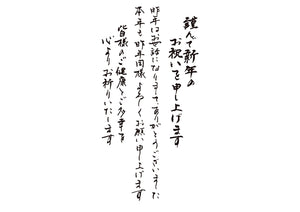 謹んで新年の
お祝いを申し上げます
昨年はお世話になりましてありがとうございました
本年も昨年同様よろしくお願い申し上げます
皆様のご健康とご多幸を
心よりお祈りいたします